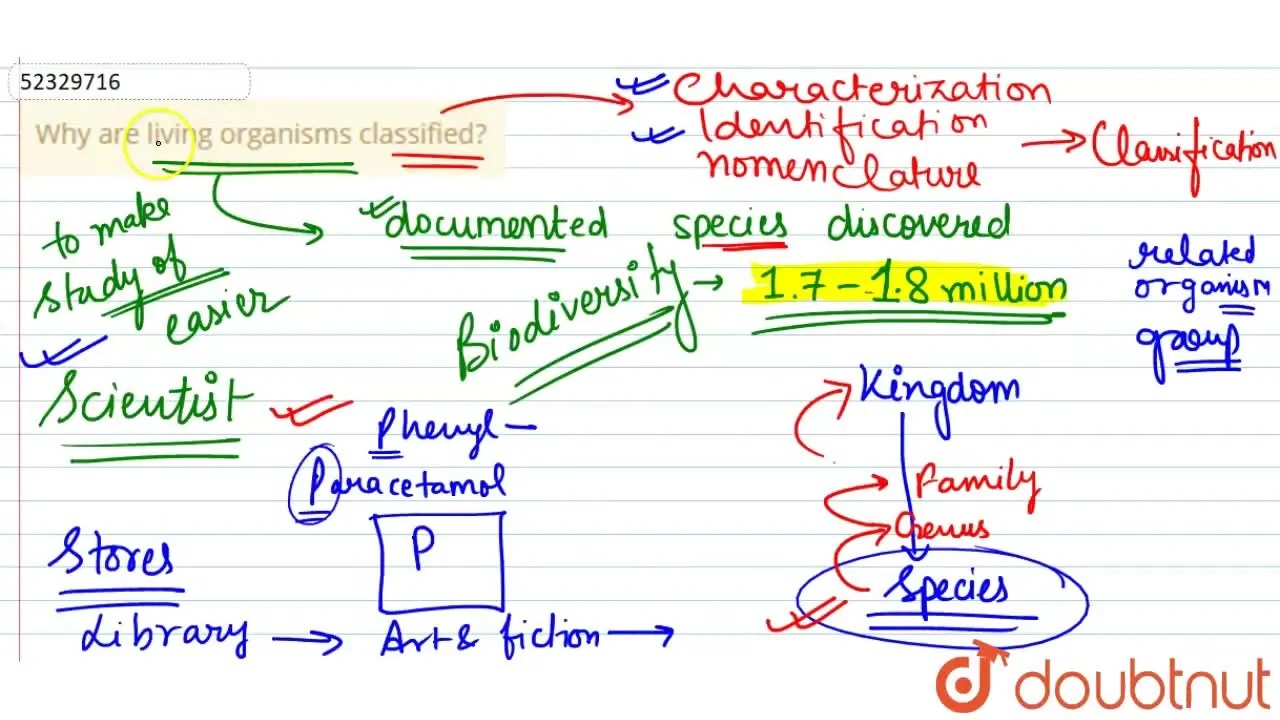 52329716
Why are living organisms classified?
Characterization
Identification
nomenclature
Classification
to make
study of
easier
documented species discovered
Biodiversity
1.7-1.8 million
related
organism
group
Scientist
Phenyl-
Paracetamol
P
Kingdom
Family
Genus
Species
Stores
Library
Art & fiction
doubtnut